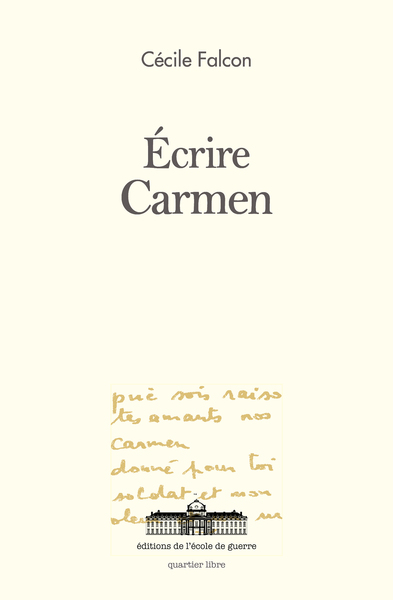 Cécile Falcon
Écrire
Carmen
puè sois raiso
tes amants nos
Carmen
donné pour toi
soldat et mon
un
éditions de l'école de guerre
quartier libre